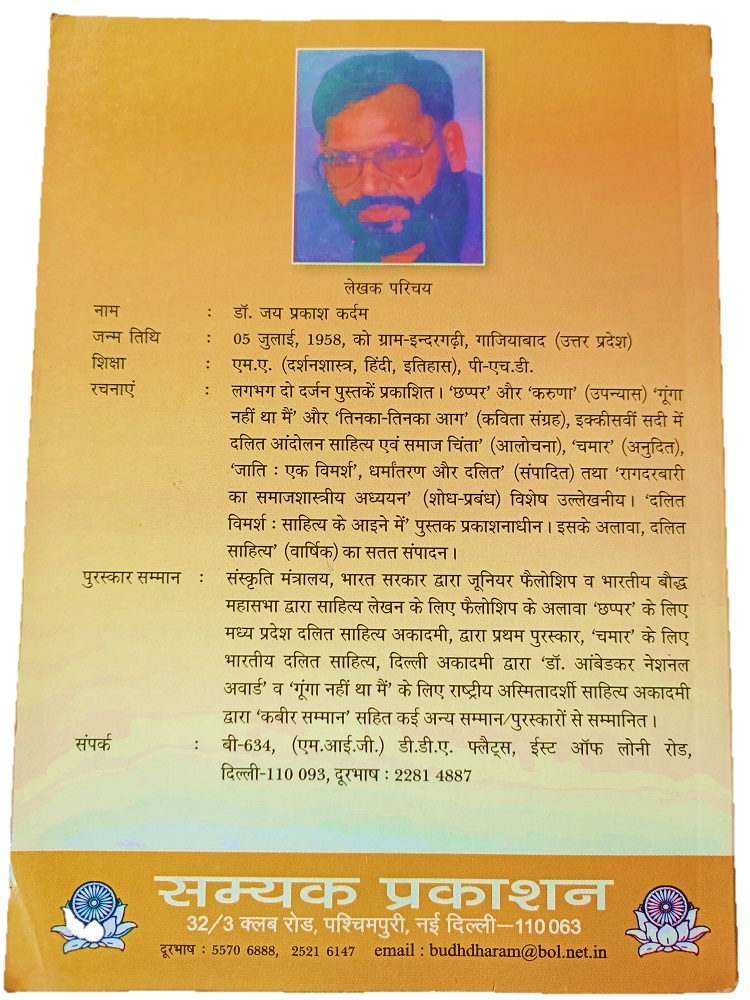 लेखक परिचय
नाम : डॉ. जय प्रकाश कर्दम
जन्म तिथि : 05 जुलाई, 1958, को ग्राम-इन्दरगढ़ी, गाजियाबाद (उत्तर प्रदेश)
शिक्षा : एम.ए. (दर्शनशास्त्र, हिंदी, इतिहास), पी-एच.डी.
रचनाएं : लगभग दो दर्जन पुस्तकें प्रकाशित। ‘छप्पर’ और ‘करुणा’ (उपन्यास) ‘गूंगा
नहीं था मैं’ और ‘तिनका-तिनका आग’ (कविता संग्रह), इक्कीसवीं सदी में
दलित आंदोलन साहित्य एवं समाज चिंता’ (आलोचना), ‘चमार’ (अनुदित),
‘जाति : एक विमर्श’, धर्मांतरण और दलित’ (संपादित) तथा ‘रागदरबारी
का समाजशास्त्रीय अध्ययन’ (शोध-प्रबंध) विशेष उल्लेखनीय। ‘दलित
विमर्श : साहित्य के आइने में’ पुस्तक प्रकाशनाधीन। इसके अलावा, दलित
साहित्य’ (वार्षिक) का सतत संपादन।
पुरस्कार सम्मान : संस्कृति मंत्रालय, भारत सरकार द्वारा जूनियर फैलोशिप व भारतीय बौद्ध
महासभा द्वारा साहित्य लेखन के लिए फैलोशिप के अलावा ‘छप्पर’ के लिए
मध्य प्रदेश दलित साहित्य अकादमी, द्वारा प्रथम पुरस्कार, ‘चमार’ के लिए
भारतीय दलित साहित्य, दिल्ली अकादमी द्वारा ‘डॉ. आंबेडकर नेशनल
अवार्ड’ व ‘गूंगा नहीं था मैं’ के लिए राष्ट्रीय अस्मितादर्शी साहित्य अकादमी
द्वारा ‘कबीर सम्मान’ सहित कई अन्य सम्मान/पुरस्कारों से सम्मानित।
संपर्क : बी-634, (एम.आई.जी.) डी.डी.ए. फ्लैट्स, ईस्ट ऑफ लोनी रोड,
दिल्ली-110 093, दूरभाष : 2281 4887
सम्यक प्रकाशन
32/3 क्लब रोड, पश्चिमपुरी, नई दिल्ली–110063
दूरभाष : 5570 6888, 2521 6147 email : budhdharam@bol.net.in